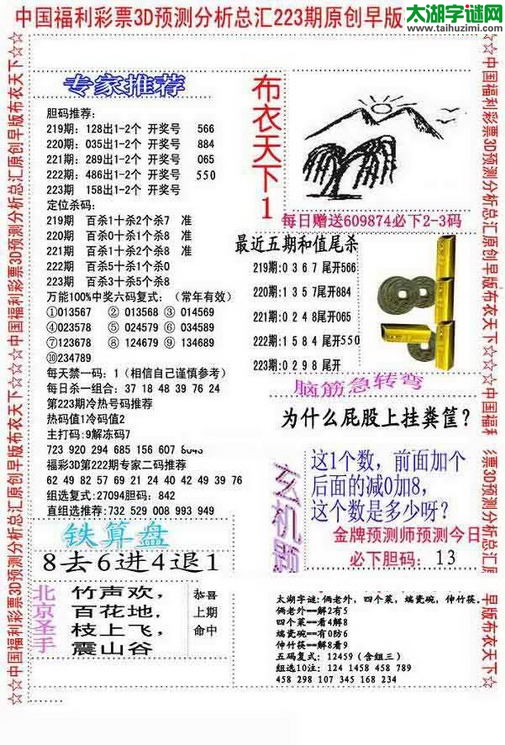 中国福利彩票3D预测分析总汇223期原创早版
太湖字谜网
www.taihuzimi.com
☆☆中国福利彩票3D预测分析总汇原创早版布衣天下☆☆
专家推荐
胆码推荐:
219期: 128出1-2个 开奖号 566
220期: 035出1-2个 开奖号 884
221期: 289出1-2个 开奖号 065
222期: 486出1-2个 开奖号 550
223期 158出1-2个 开奖号
定位杀码:
219期 百杀1十杀2个杀7 准
220期 百杀0十杀1个杀6 准
221期 百杀1十杀2个杀8 准
222期 百杀5十杀1个杀0
223期 百杀3十杀5个杀8
万能100%中奖六码复式: (常年有效)
①013567 ② 013568 ③ 014569
④023578 ⑤ 024579 ⑥ 034589
⑦123678 ⑧ 124679 ⑨ 134689
⑩234789
每天禁一码: 1 (相信自己谨慎参考)
每日杀一组合: 37 18 48 39 76 24
第223期冷热号码推荐
热码值1冷码值2
主打码: 9解冻码7
723 920 294 685 156 607
福彩3D第222期专家二码推荐
62 49 82 57 69 21 24 40 42 49 39 76
组选复式:27094胆码: 842
直组选推荐:732 529 008 993 949
布衣天下1
每日赠送609874必下2-3码
最近五期和值尾杀
219期:0 3 6 7 尾开566
220期:1 3 5 7 尾开884
221期:0 2 4 8 尾开065
222期:1 5 8 4 尾开550
223期:0 2 9 8 尾开
脑筋急转弯
为什么屁股上挂粪筐?
玄机题
这1个数, 前面加个
后面的减0加8,
这个数是多少呀?
金牌预测师预测今日
必下胆码: 13
铁算盘
8去6进4退1
北京圣手
竹声欢,
百花地,
枝上飞,
震山谷
恭喜
上期
命中
太湖字谜:俩老外, 四个菜, 端瓷碗, 伸竹筷,
俩老外--解2有5
四个菜--看4解8
端瓷碗--有0防6
伸竹筷--解8看9
五码复式: 12459 (含组三)
组选10注: 124 1458 458 789
458 298 107 345 168 234
☆☆中国福利彩票3D预测分析总汇原创早版布衣天下☆☆☆中国福利
彩票3D预测分析总汇原
早版布衣天下☆☆